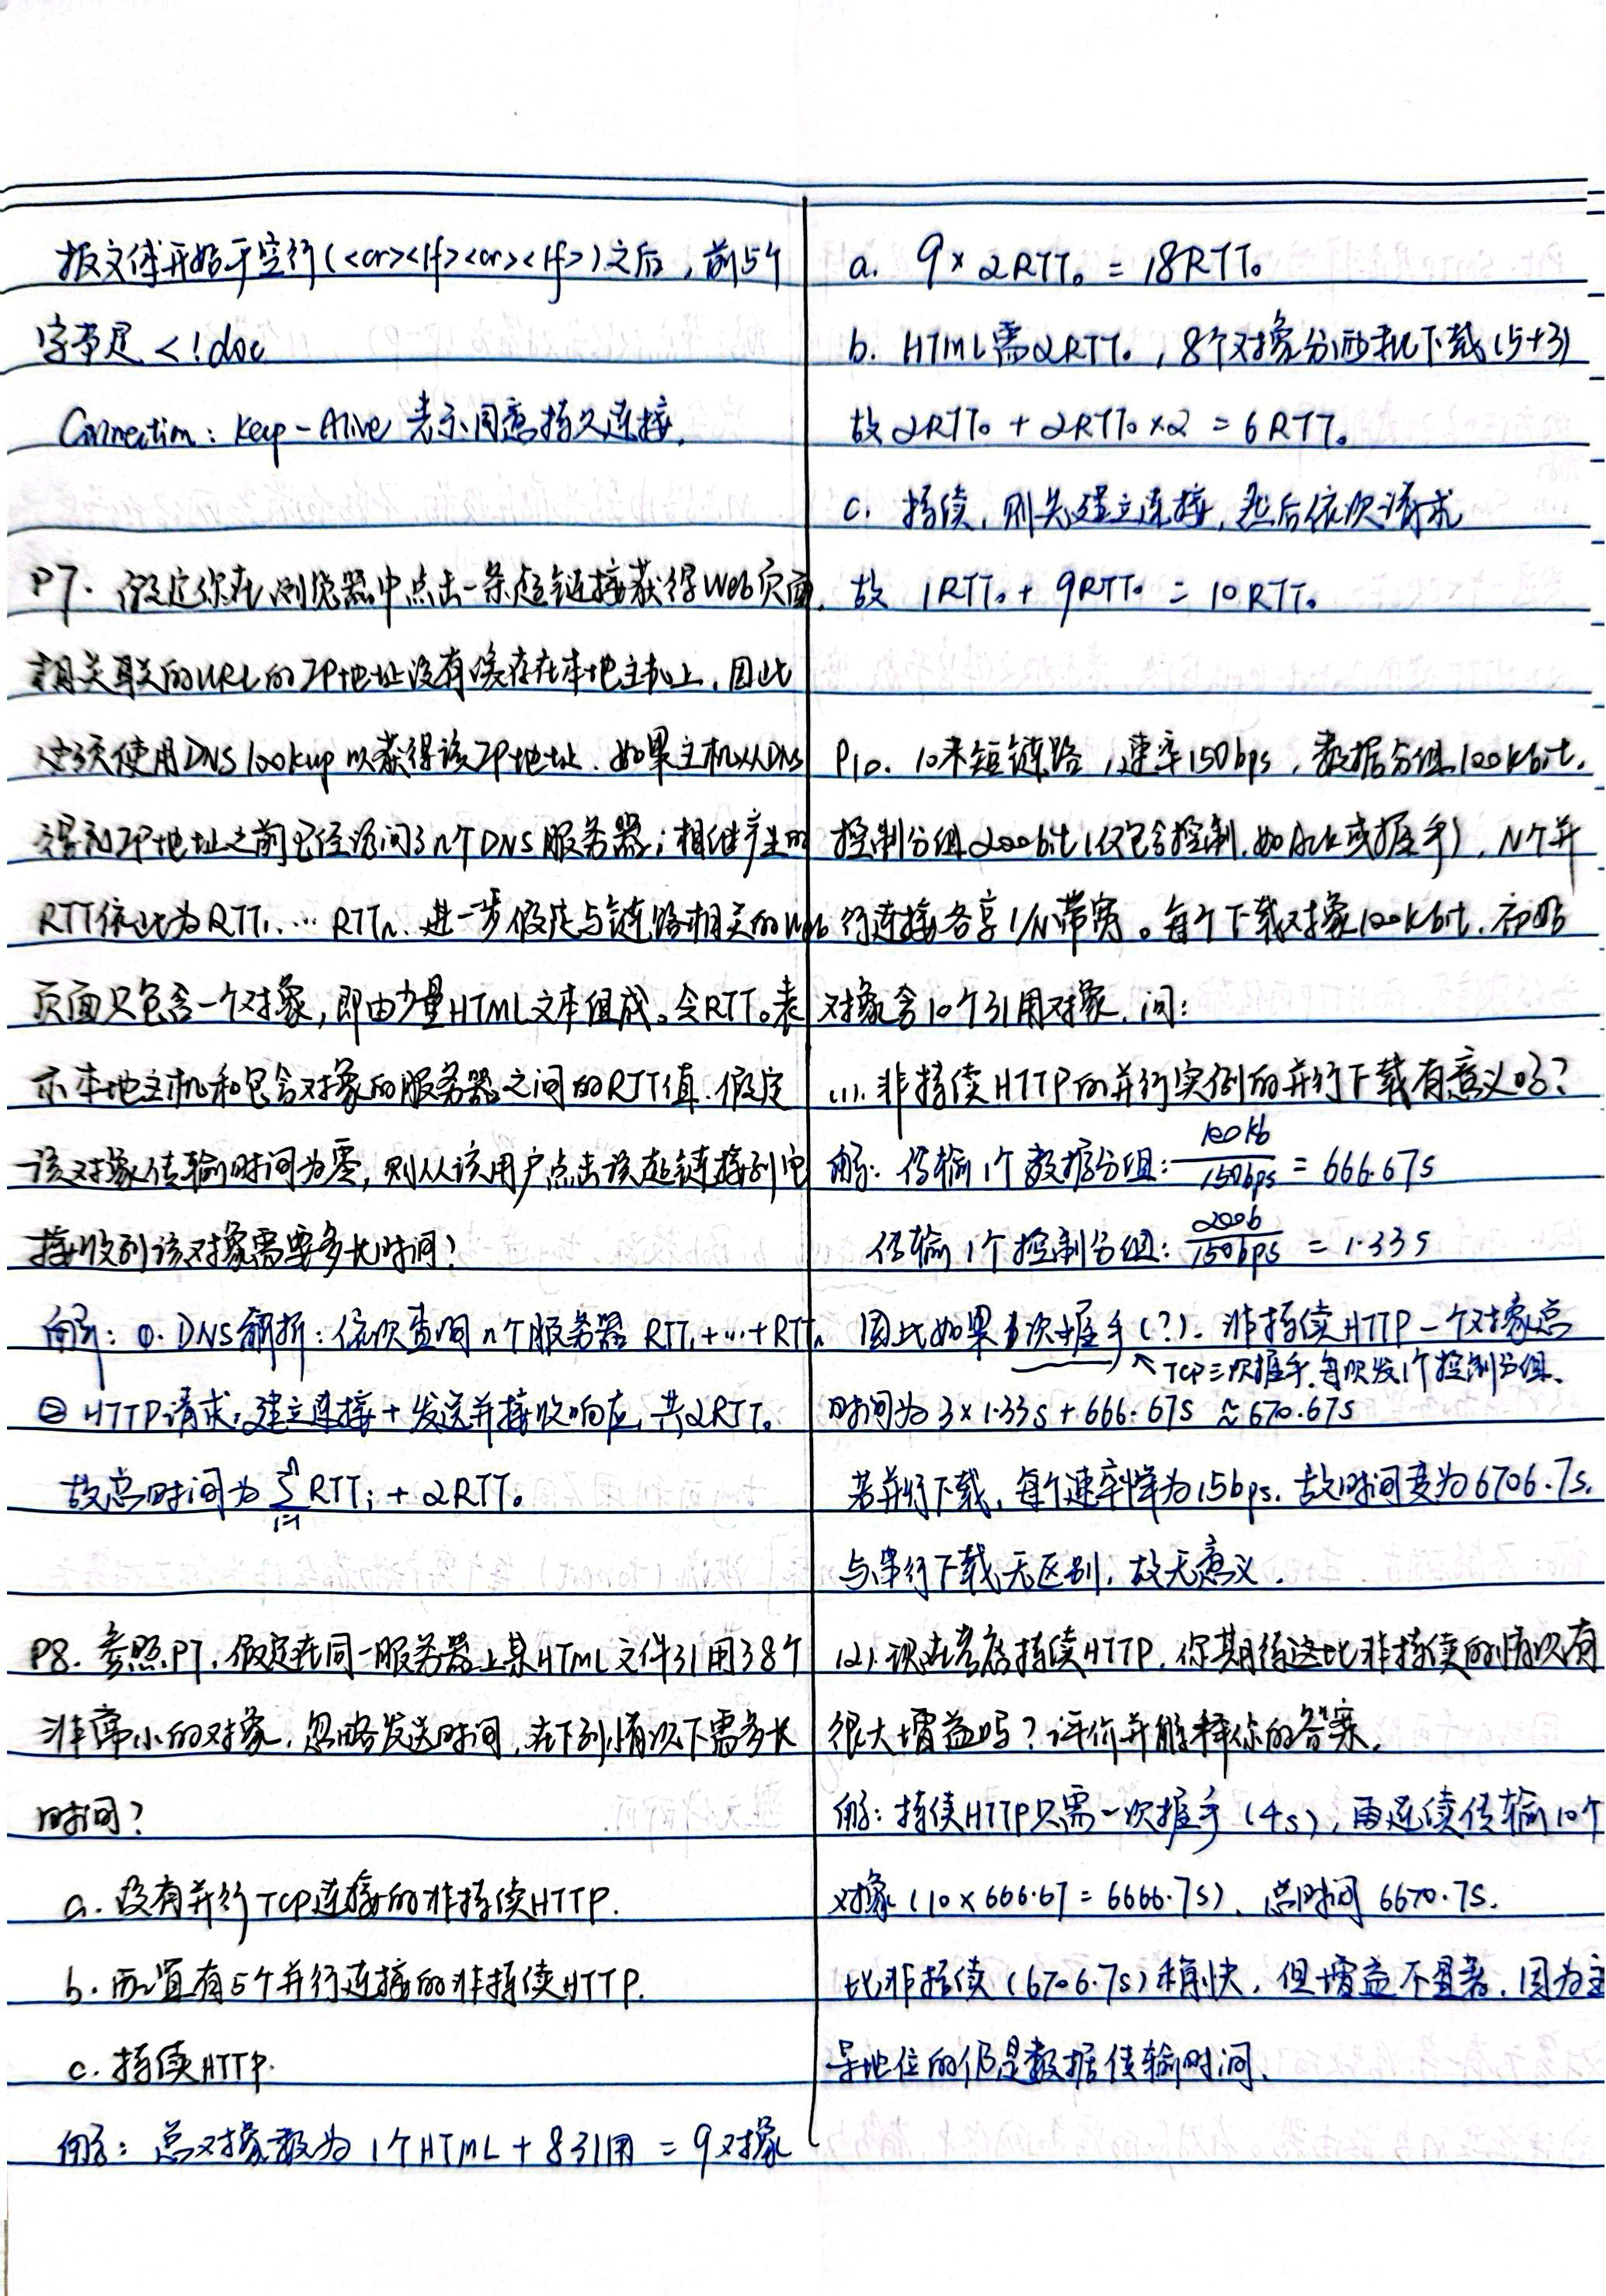 报文体开始于空行(<cr><lf><cr><lf>)之后，前5个
字节是 <!doc
Connection: Keep-Alive 表示同意持久连接.
P7. 假定你在浏览器中点击一条超链接获得Web页面.
相关联的URL的IP地址没有缓存在本地主机上，因此
使用DNS lookup以获得该IP地址. 如果主机从DNS
得到IP地址之前已经访问了n个DNS服务器；相继产生的
RTT依次为RTT₁、… RTTₙ. 进一步假定与链路相关的Web
页面只包含一个对象，即由少量HTML文本组成。令RTT₀表
示本地主机和包含对象的服务器之间的RTT值. 假定
该对象传输时间为零，则从该用户点击该超链接到它
接收到该对象需要多长时间？
解：①. DNS解析：依次查询n个服务器 RTT₁+…+RTTₙ
② HTTP请求：建立连接+发送并接收响应，共2RTT₀
故总时间为 ∑ⁿᵢ₌₁ RTTᵢ + 2RTT₀
P8. 参照P7，假定在同一服务器上某HTML文件引用38个
非常小的对象，忽略发送时间，在下列情况下需多长
时间？
a. 没有并行TCP连接的非持续HTTP.
b. 配置有5个并行连接的非持续HTTP.
c. 持续HTTP.
解：总对象数为 1个HTML + 8引用 = 9对象
a. 9 × 2RTT₀ = 18RTT₀
b. HTML需2RTT₀，8个对象分两批下载(5+3)
故 2RTT₀ + 2RTT₀×2 = 6RTT₀
c. 持续，则先建立连接，然后依次请求
故 1RTT₀ + 9RTT₀ = 10RTT₀
P10. 10米短链路，速率150bps，数据分组100kbit，
控制分组200bit(仅包含控制，如Ack或握手)，N个并
行连接各享1/N带宽。每个下载对象100kbit，初始
对象含10个引用对象，问：
(1). 非持续HTTP的并行实例的并行下载有意义吗？
解：传输1个数据分组：100kb/150bps = 666.67s
传输1个控制分组：200b/150bps = 1.33s
因此如果3次握手(?)，非持续HTTP一个对象总
↖TCP三次握手，每次发1个控制分组.
时间为 3×1.33s + 666.67s ≈ 670.67s
若并行下载，每个速率降为15bps，故时间变为6706.7s，
与串行下载无区别，故无意义.
(2). 现在考虑持续HTTP. 你期待这比非持续的情况有
很大增益吗？评价并解释你的答案.
解：持续HTTP只需一次握手(4s)，再连续传输10个
对象(10×666.67=6666.7s)，总时间 6670.7s.
比非持续(6706.7s)稍快，但增益不显著，因为主
导地位的仍是数据传输时间.